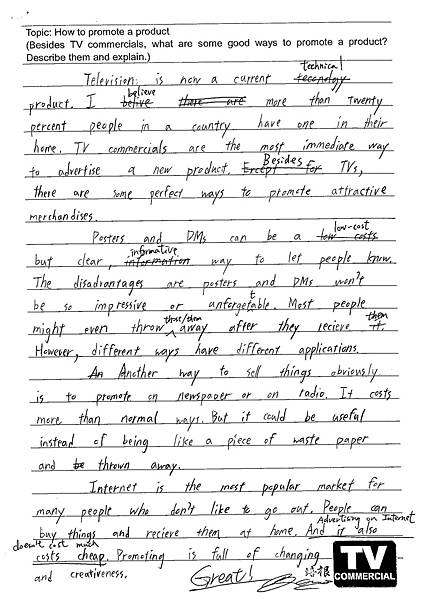 Topic: How to promote a product
(Besides TV commercials, what are some good ways to promote a product?
Describe them and explain.)
technical
Television is now a current tecnology
believe
product. I belive there are more than twenty
percent people in a country have one in their
home. TV commercials are the most immediate way
Besides
to advertise a new product. Except for TVs,
there are some perfect ways to promote attractive
merchandises.
low-cost
Posters and DMs can be a low costs
informative
but clear, information way to let people know.
The disadvantages are posters and DMs won't
t
be so impressive or unforgetable. Most people
them
might even throw away after they recieve it.
However, different ways have different applications.
An Another way to sell things obviously
is to promote on newspaper or on radio. It costs
more than normal ways. But it could be useful
instead of being like a piece of waste paper
and be thrown away.
Internet is the most popular market for
many people who don't like to go out. People can
Advertising on Internet
buy things and recieve them at home. And it also
doesn't cost much
costs cheap. Promoting is full of changing
and creativeness.
Great!
TV
COMMERCIAL